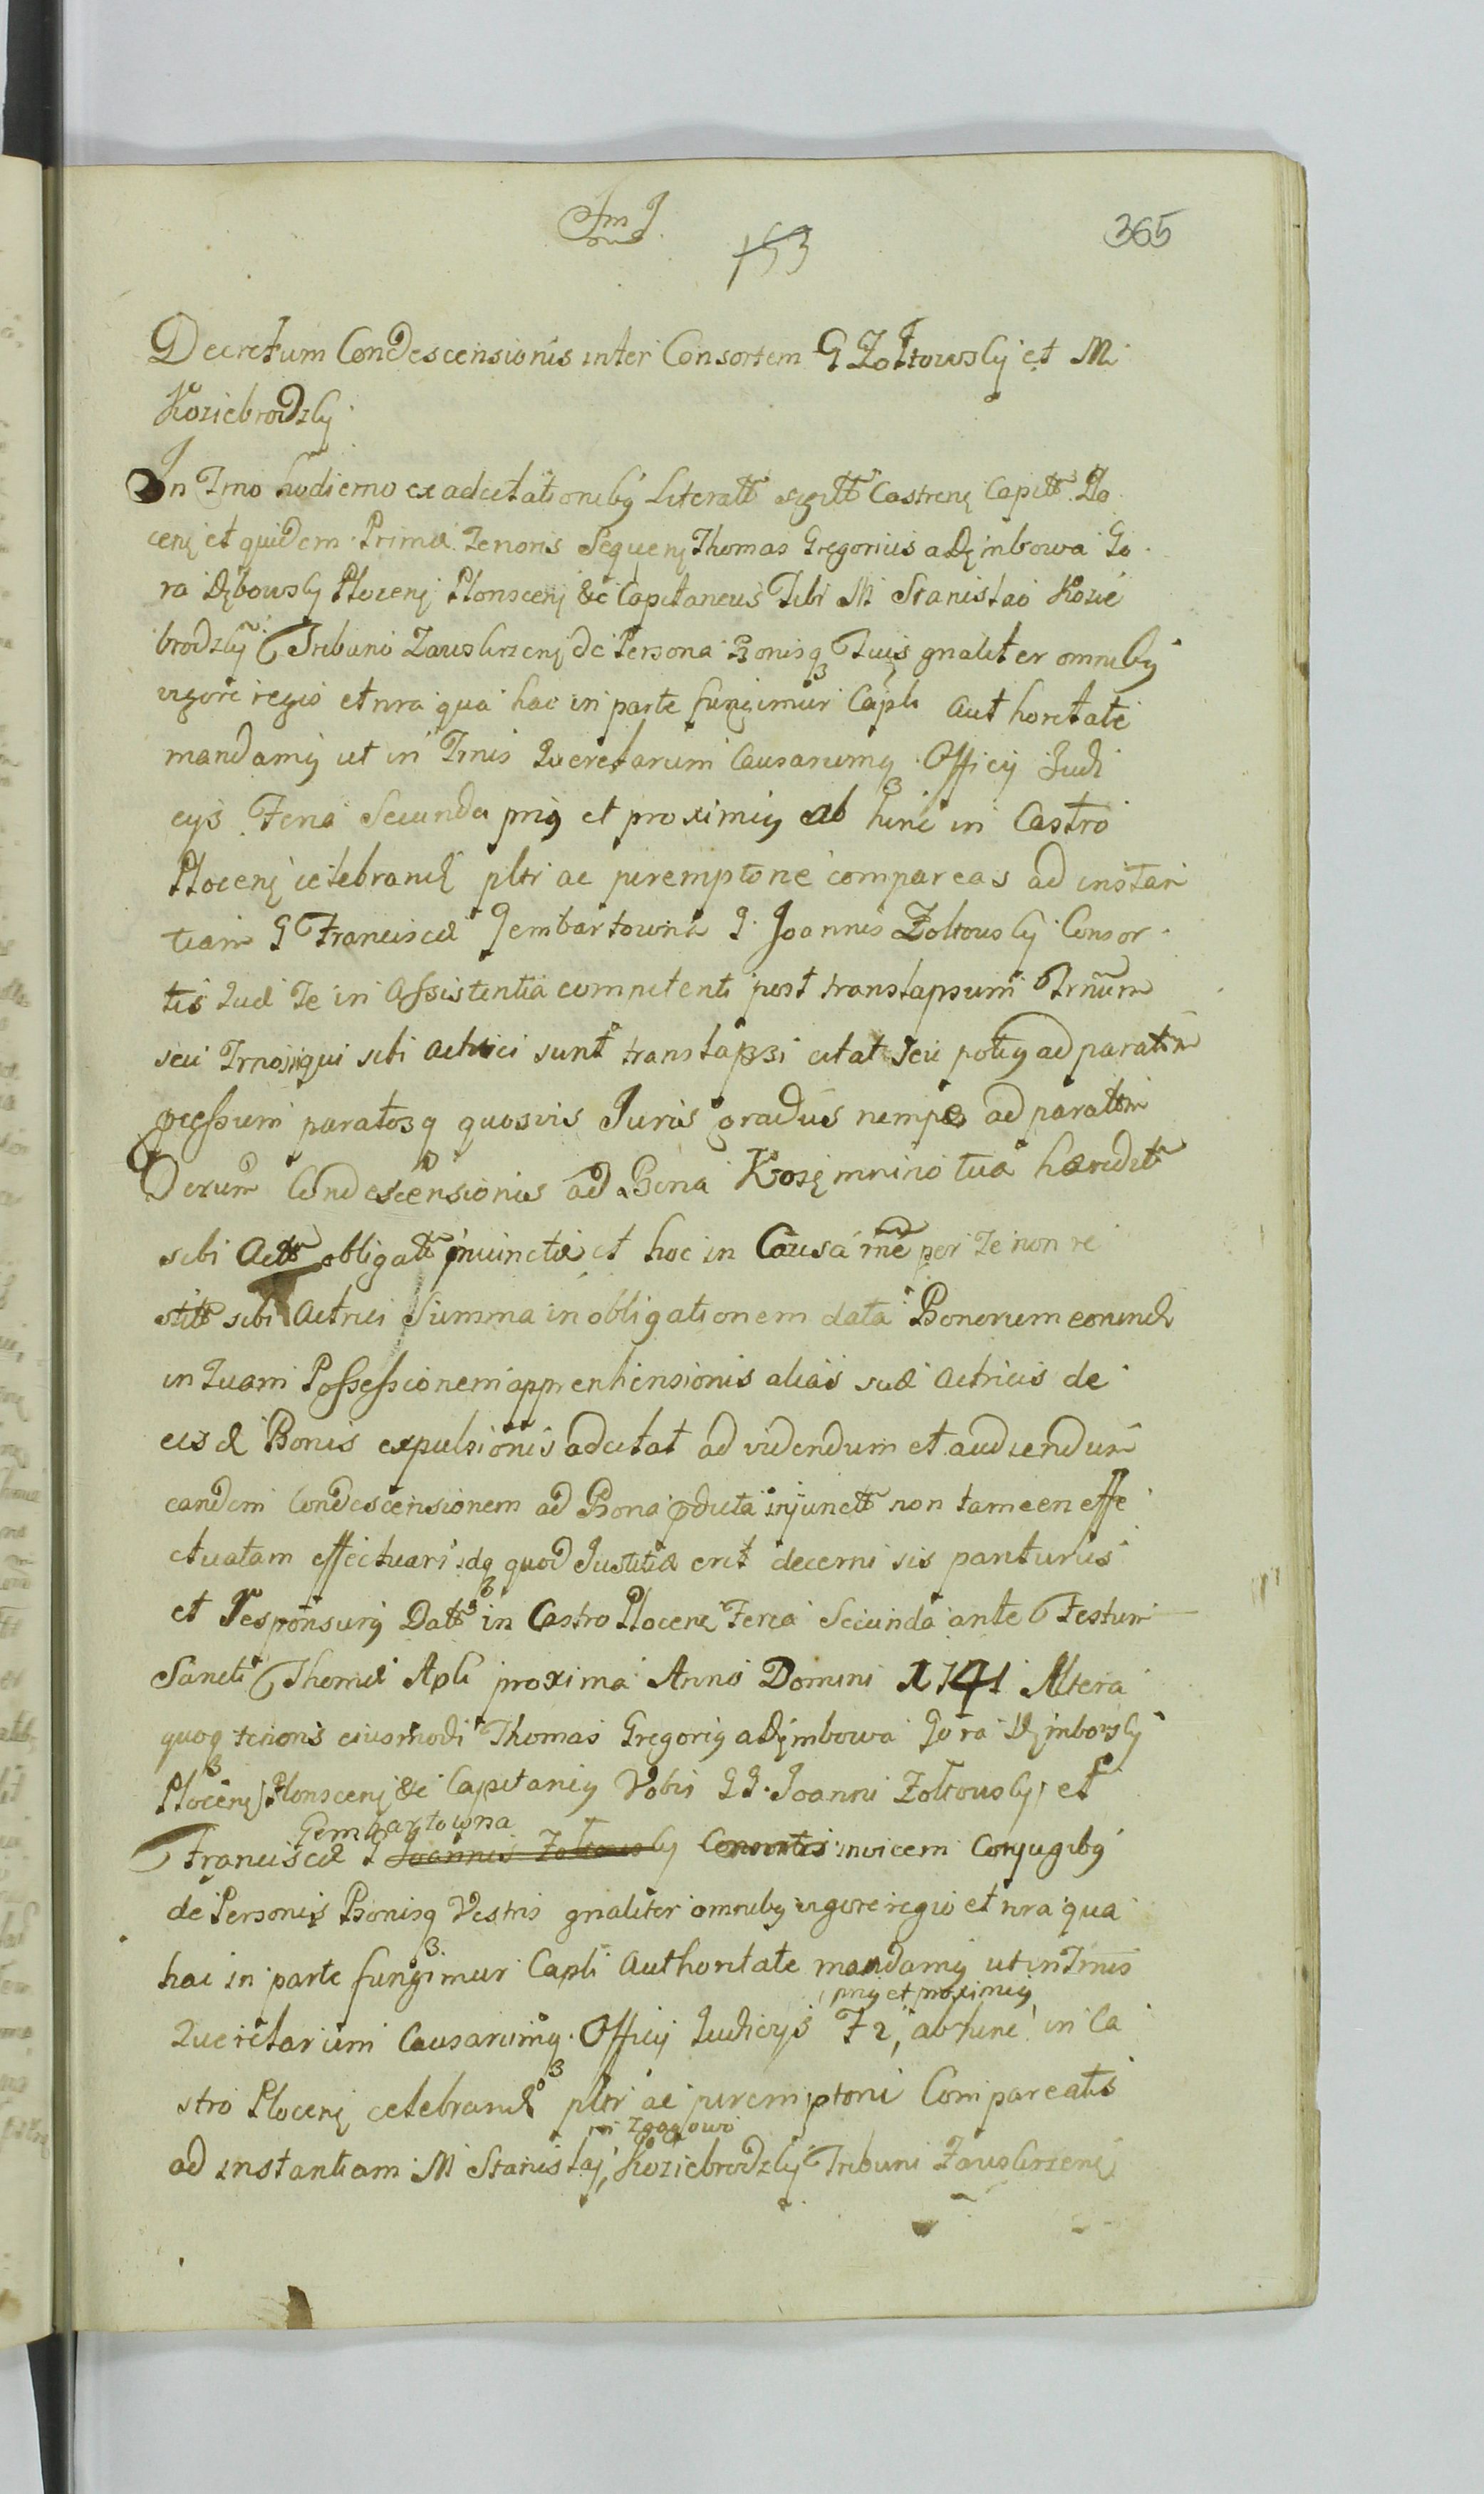 365
153
Decretum Condescensionis inter Consortem G Zołtowsky et M
Koziebrodzky
In Tmo hodierno ex adcitationibg Literatt sigitt Castrenj Capitt Plo
cenj et quidem Primæ Tenoris Sequenj Thomas Gregorius a Dęmbowa Go
ra Dębowsky Plocenj Plonscenj &c Capitaneus Tibi M Stanislao Kozie
brodzky Tribuno Zawskrzenj de Persona Bonisq Tuis gnaliter omnibg
vigore regio et nra qua hac in parte fungimur Capli Authoritate
mandamg ut in Tmis Querelarum Causarumq Officij Judi
cys Feria Secunda prig et proximig ab hinc in Castro
Plocenj celebrand pltr ac peremptorie compareas ad instan
tiam G Franciscæ Gembartowna G Joannis Zoltowsky Consor
tis Quæ Te in Assistentia competenti post translapsum Trnum
seu Trnos qui sibi Actrici sunt translapsi citat seu potig ad paratum
pcessum paratosq quosvis Juris gradus nempe ad paratum
Derum Condescensionis ad Bona Kozęmnino tua hæredit
sibi Actt obligatt inuinctæ et hoc in Causa rne per Te non re
stitt sibi Actrici Summa in obligationem data Bonorum eorund
in Quam Possessionem apprenhensionis alias suæ Actricis de
eisd Bonis expulsionis adcitat ad videndum et audiendum
eandem Condescensionem ad Bona pdicta injunctt non tameen effe
ctuatam effectuari idq quod Justitiæ erit decerni sis pariturus
et responsurg Datt in Castro Plocenj Feria Secunda ante Festum
Sancti Thomæ Apli proxima Anno Domini 1741 Altera
quoq tenoris eiusmodi Thomas Gregorig a Dęmbowa Gora Dęmbowsky
Plocenj Plonscenj &c Capitaneg Vobis GG Joanni Zoltowsky et
Gembartowna
Franciscæ G Joannis Zoltowsky Consortis invicem Conjugibg
de Personis Bonisq Vestris gnaliter omnibg vigore regio et nra qua
hac in parte fungimur Capli Authoritate mandamg ut in Tmis
prig et proximig
Querelarum Causarumq Officij Judicijs F 2, ab hinc in Ca
stro Plocenj celebrand pltr ac peremptorie Compareatis
ad instantiam M Stanislaj, Koziebrodzky Tribuni Zawskrzenj